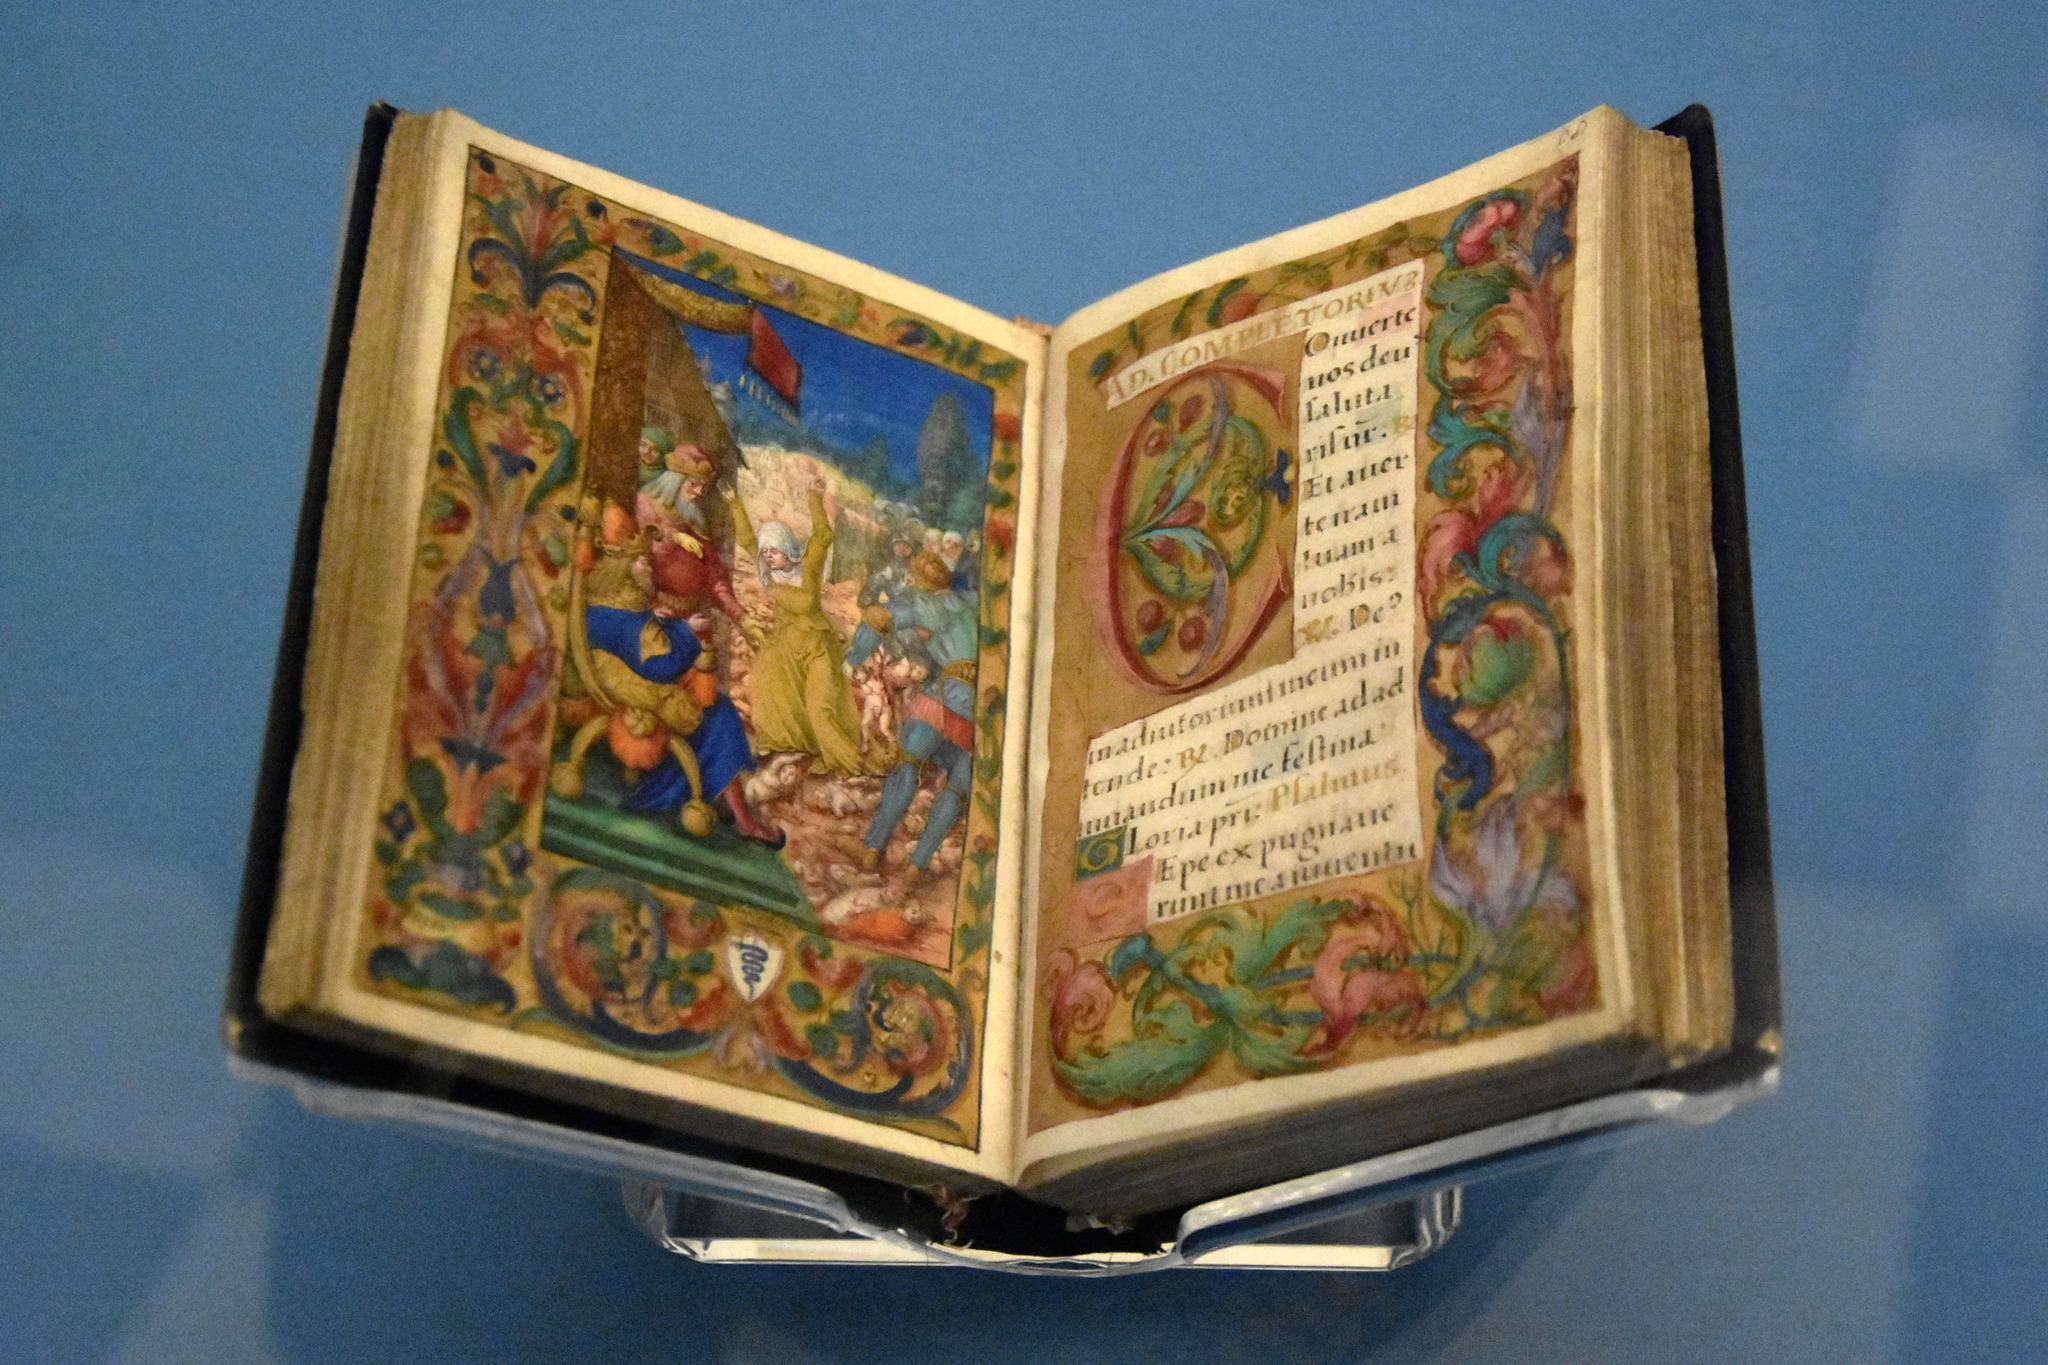 AD. COMPLETORIUȝ
COnuerte
nos deus
saluta
ris nr̄. ℟
Et auer
te iram
tuam a
nobis:
℣. De⁹
in adiutorium meum in
tende: ℟. Domine ad ad
iuuandum me festina
GLoria pri: Psalmus
SEpe expugnaue
runt me a iuuentu